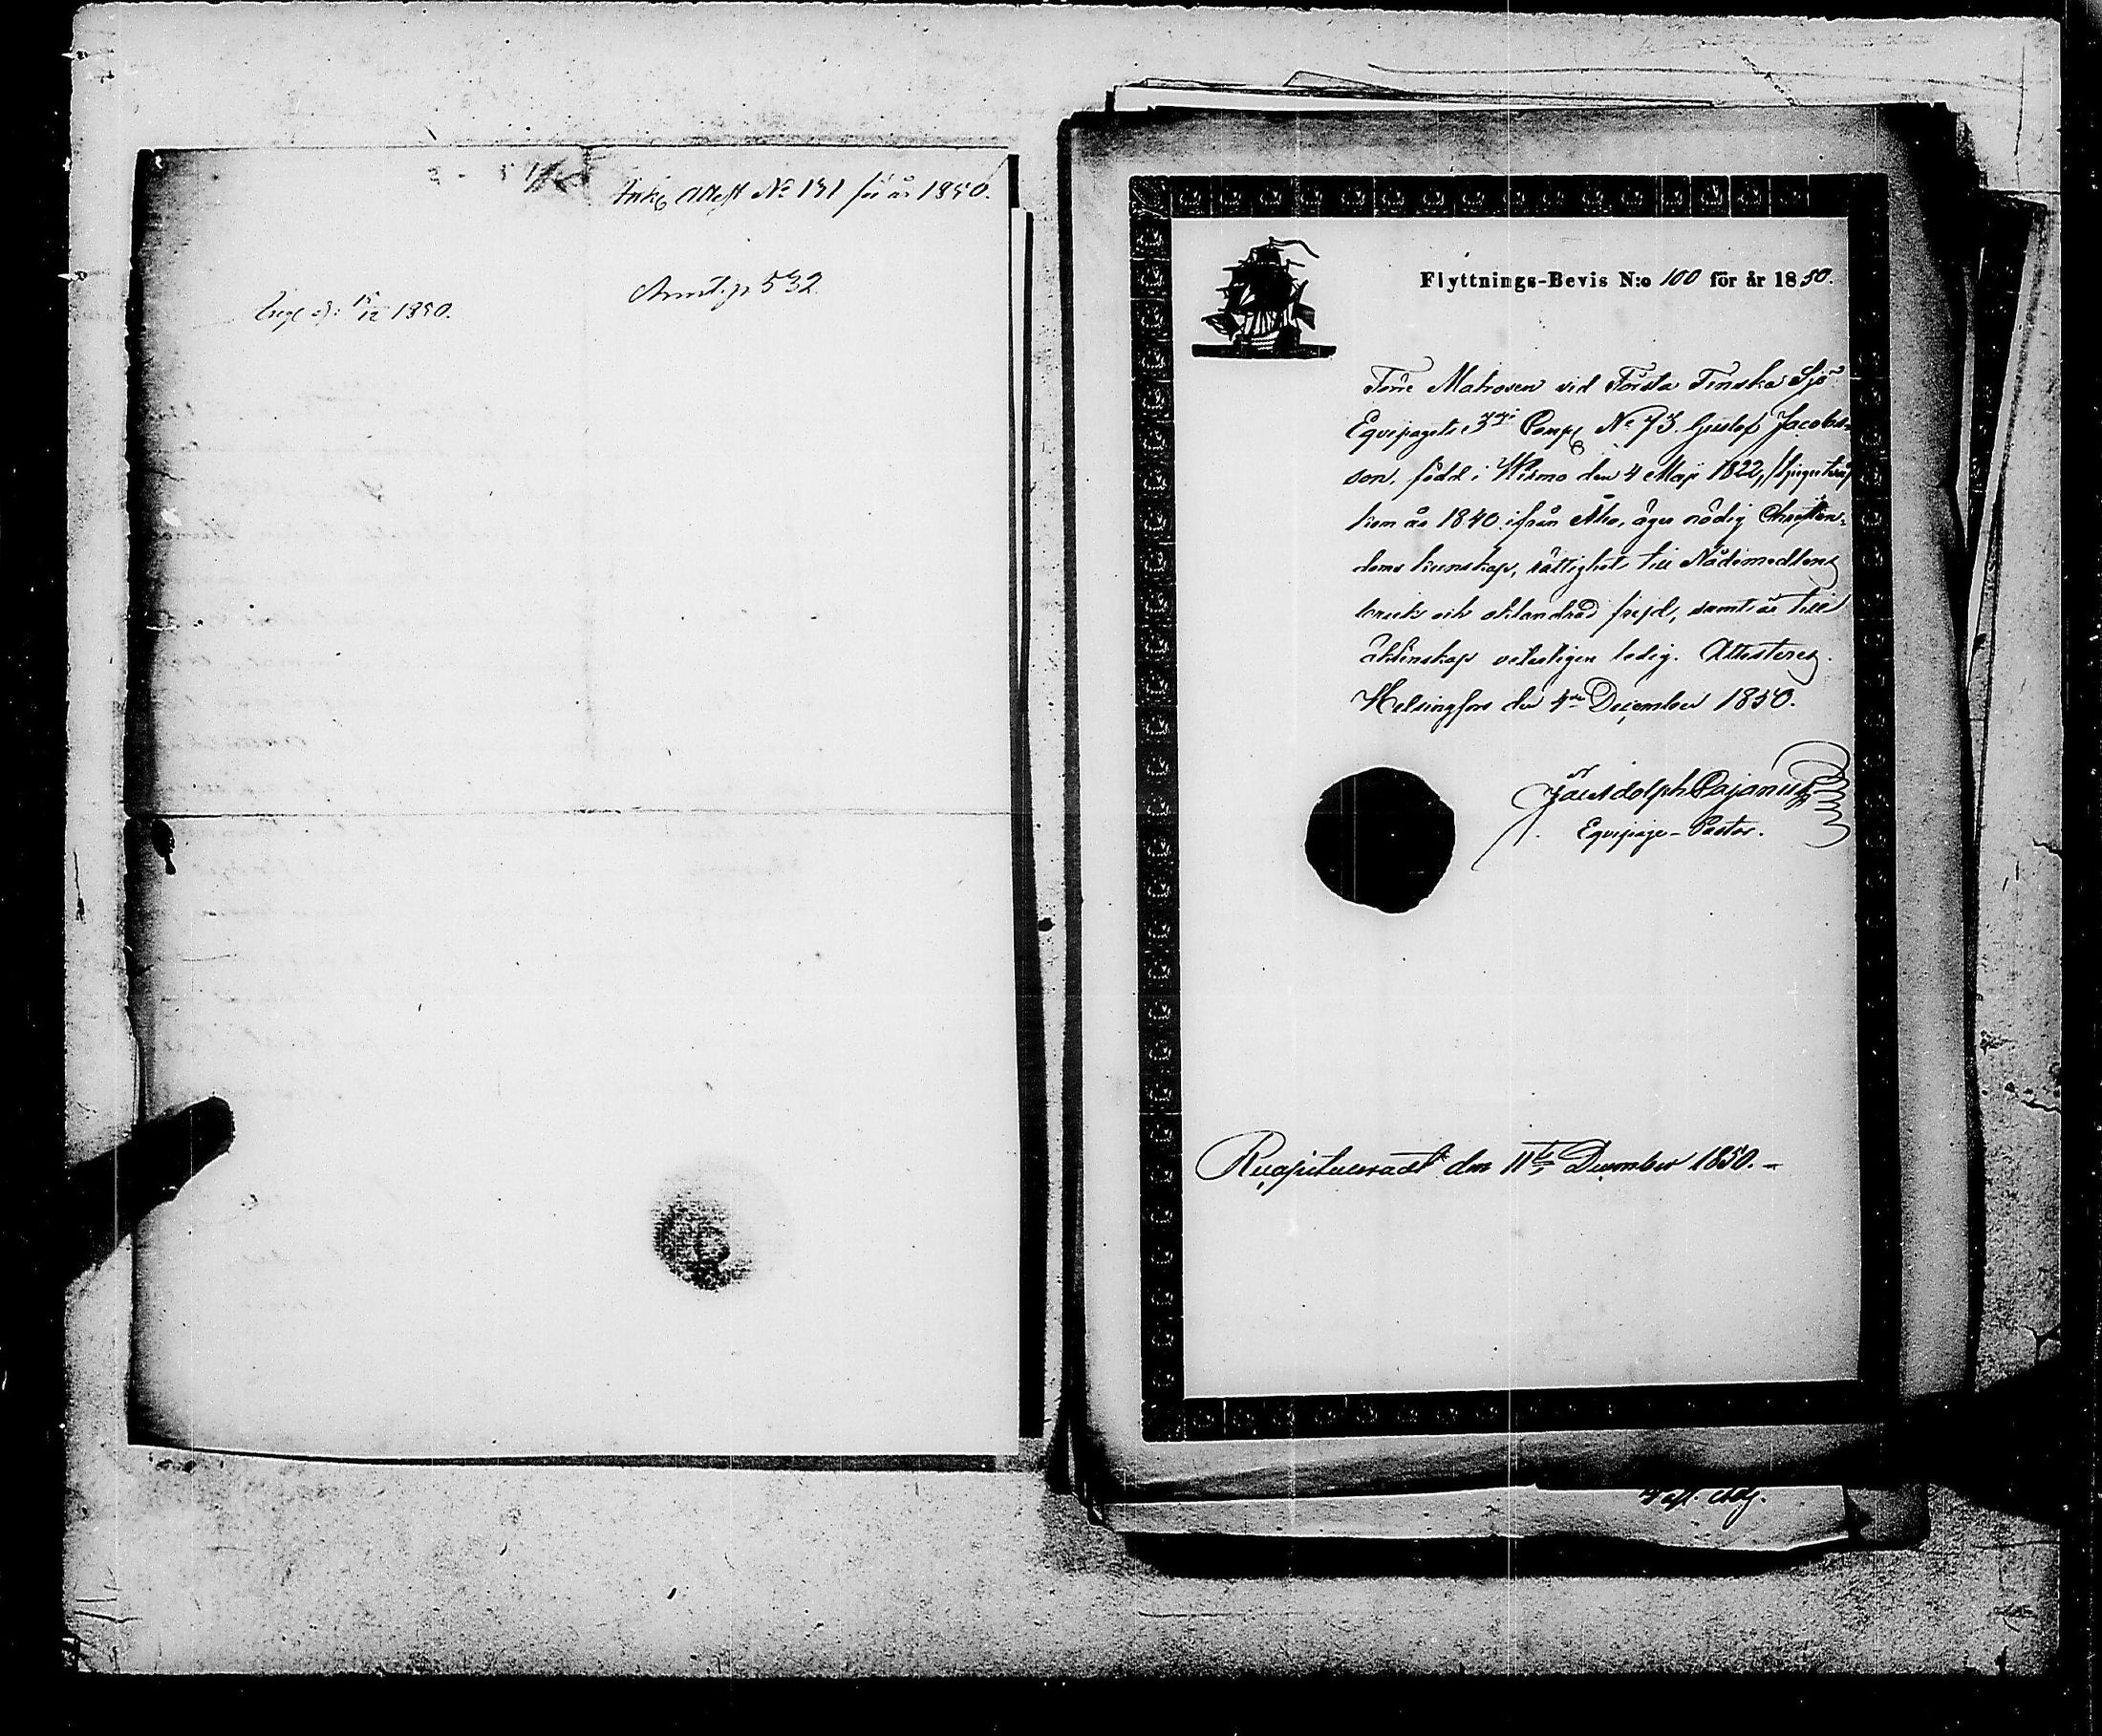 Ink. Attest No 151 för år 1850.
532
15/12 1850.
Flyttnings-Bevis N:o 100 för år 1850.
Förre Matrosen vid Första Finska Sjö
Equipagets 3dje Comp. No 73. Gustaf Jacobs-
son, född i Wirmo den 4 Maji 1822,
kom år 1840 ifrån Åbo, äger nödig Christen-
doms kunskap, rättighet till Nådemedlens
bruk och oklandrad frejd, samt är till
äktenskap veterligen ledig. Attesteras.
Helsingfors den 4de December 1850.
Jac Adolph Pajanus
Equipage-Pastor.
Recapituleradt den 11te December 1850.